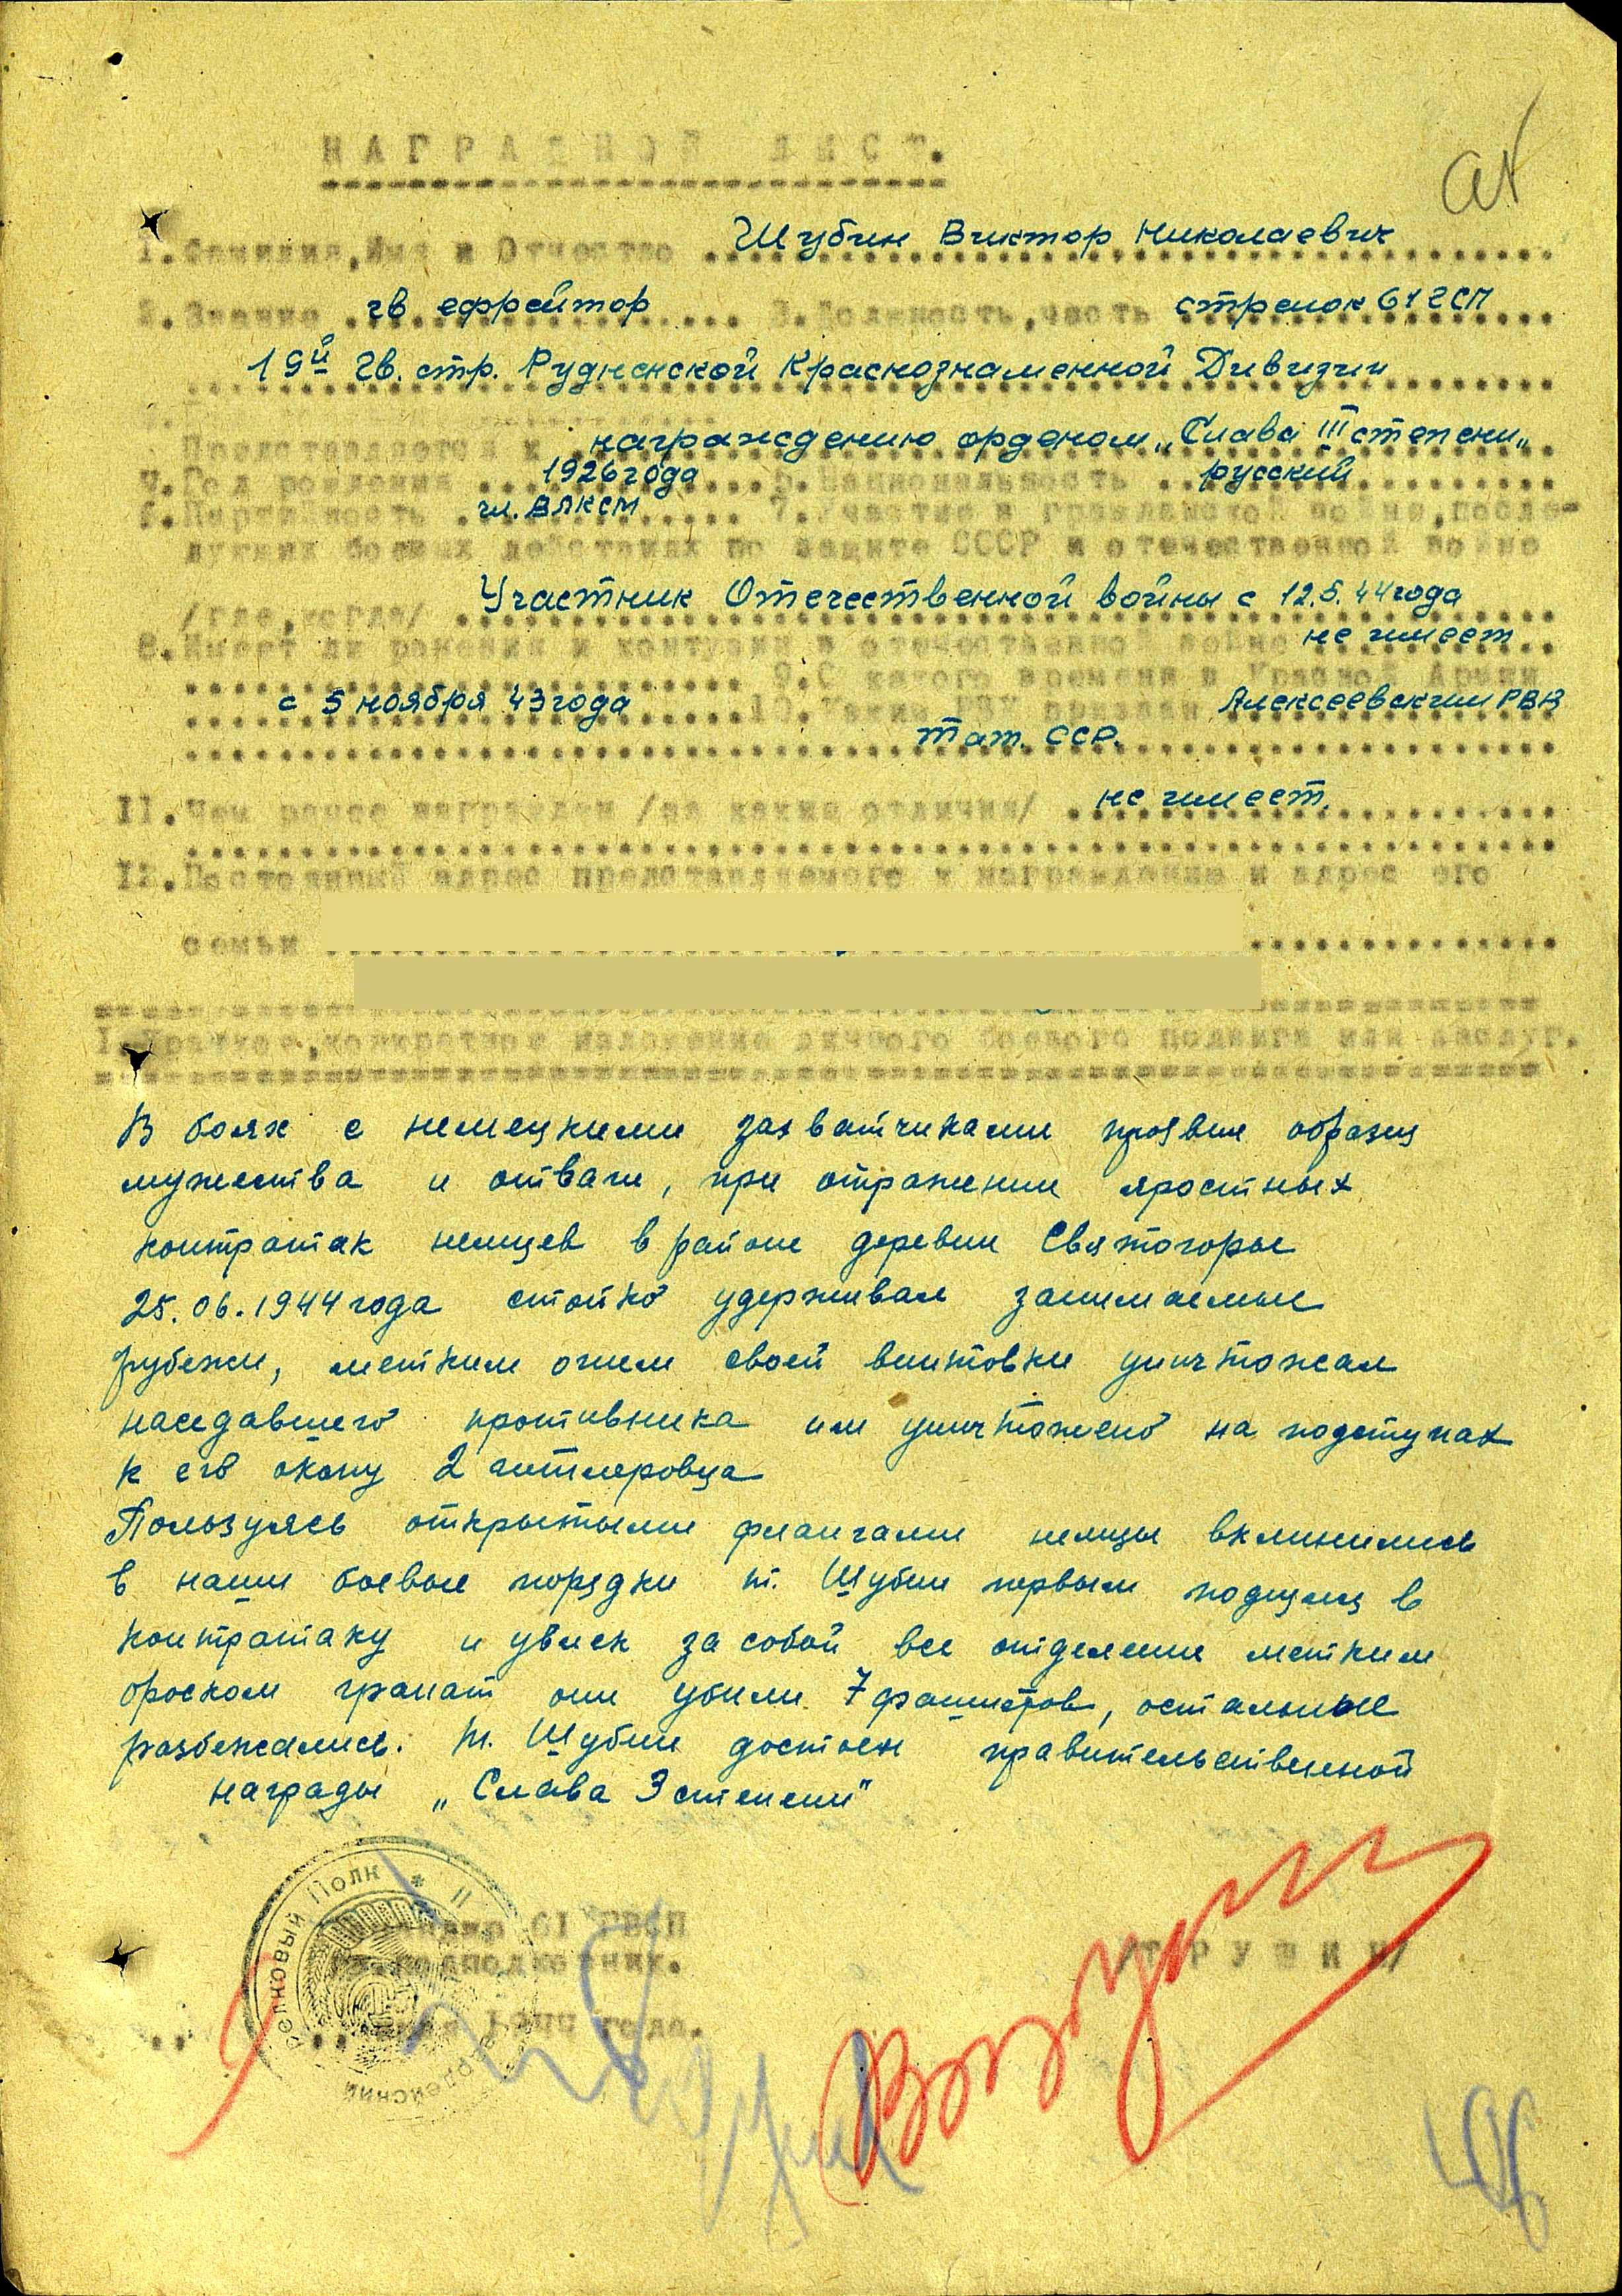 НАГРАДНОЙ ЛИСТ.
1. Фамилия, Имя и Отчество Шубин Виктор Николаевич
2. Звание гв ефрейтор 3. Должность, часть стрелок 61 гсп
19й гв. стр. Рудненской Краснознаменной Дивизии
Представляется к награждению орденом „Слава III степени„
4. Год рождения 1926 года 5. Национальность русский
6. Партийность чл. ВЛКСМ 7. Участие в гражданской войне, после-
дующих боевых действиях по защите СССР и отечественной войне
/где, когда/ Участник Отечественной войны с 12.5.44 года
8. Имеет ли ранения и контузии в отечественной войне не имеет
9. С какого времени в Красной Армии
с 5 ноября 43 года 10. Каким РВК призван Алексеевским РВК
Тат. ССР.
11. Чем ранее награжден /за какие отличия/ не имеет.
12. Постоянный адрес представляемого к награждению и адрес его
семьи
I. Краткое, конкретное изложение личного боевого подвига или заслуг.
В боях с немецкими захватчиками проявил образец
мужества и отваги, при отражении яростных
контратак немцев в районе деревни Святогоры
25.06.1944 года стойко удерживал занимаемые
рубежи, метким огнем своей винтовки уничтожал
наседавшего противника им уничтожено на подступах
к его окопу 2 гитлеровца
Пользуясь открытыми флангами немцы вклинились
в наши боевые порядки т. Шубин первым поднялся в
контратаку и увлек за собой все отделение метким
броском гранат они убили 7 фашистов, остальные
разбежались. т. Шубин достоен правительственной
награды „Слава 3 степени"
Командир 61 ГВСП
гв. подполковник. /ТРУШИН/
1944 года.
Стрелковый Полк * II
Гвардейский